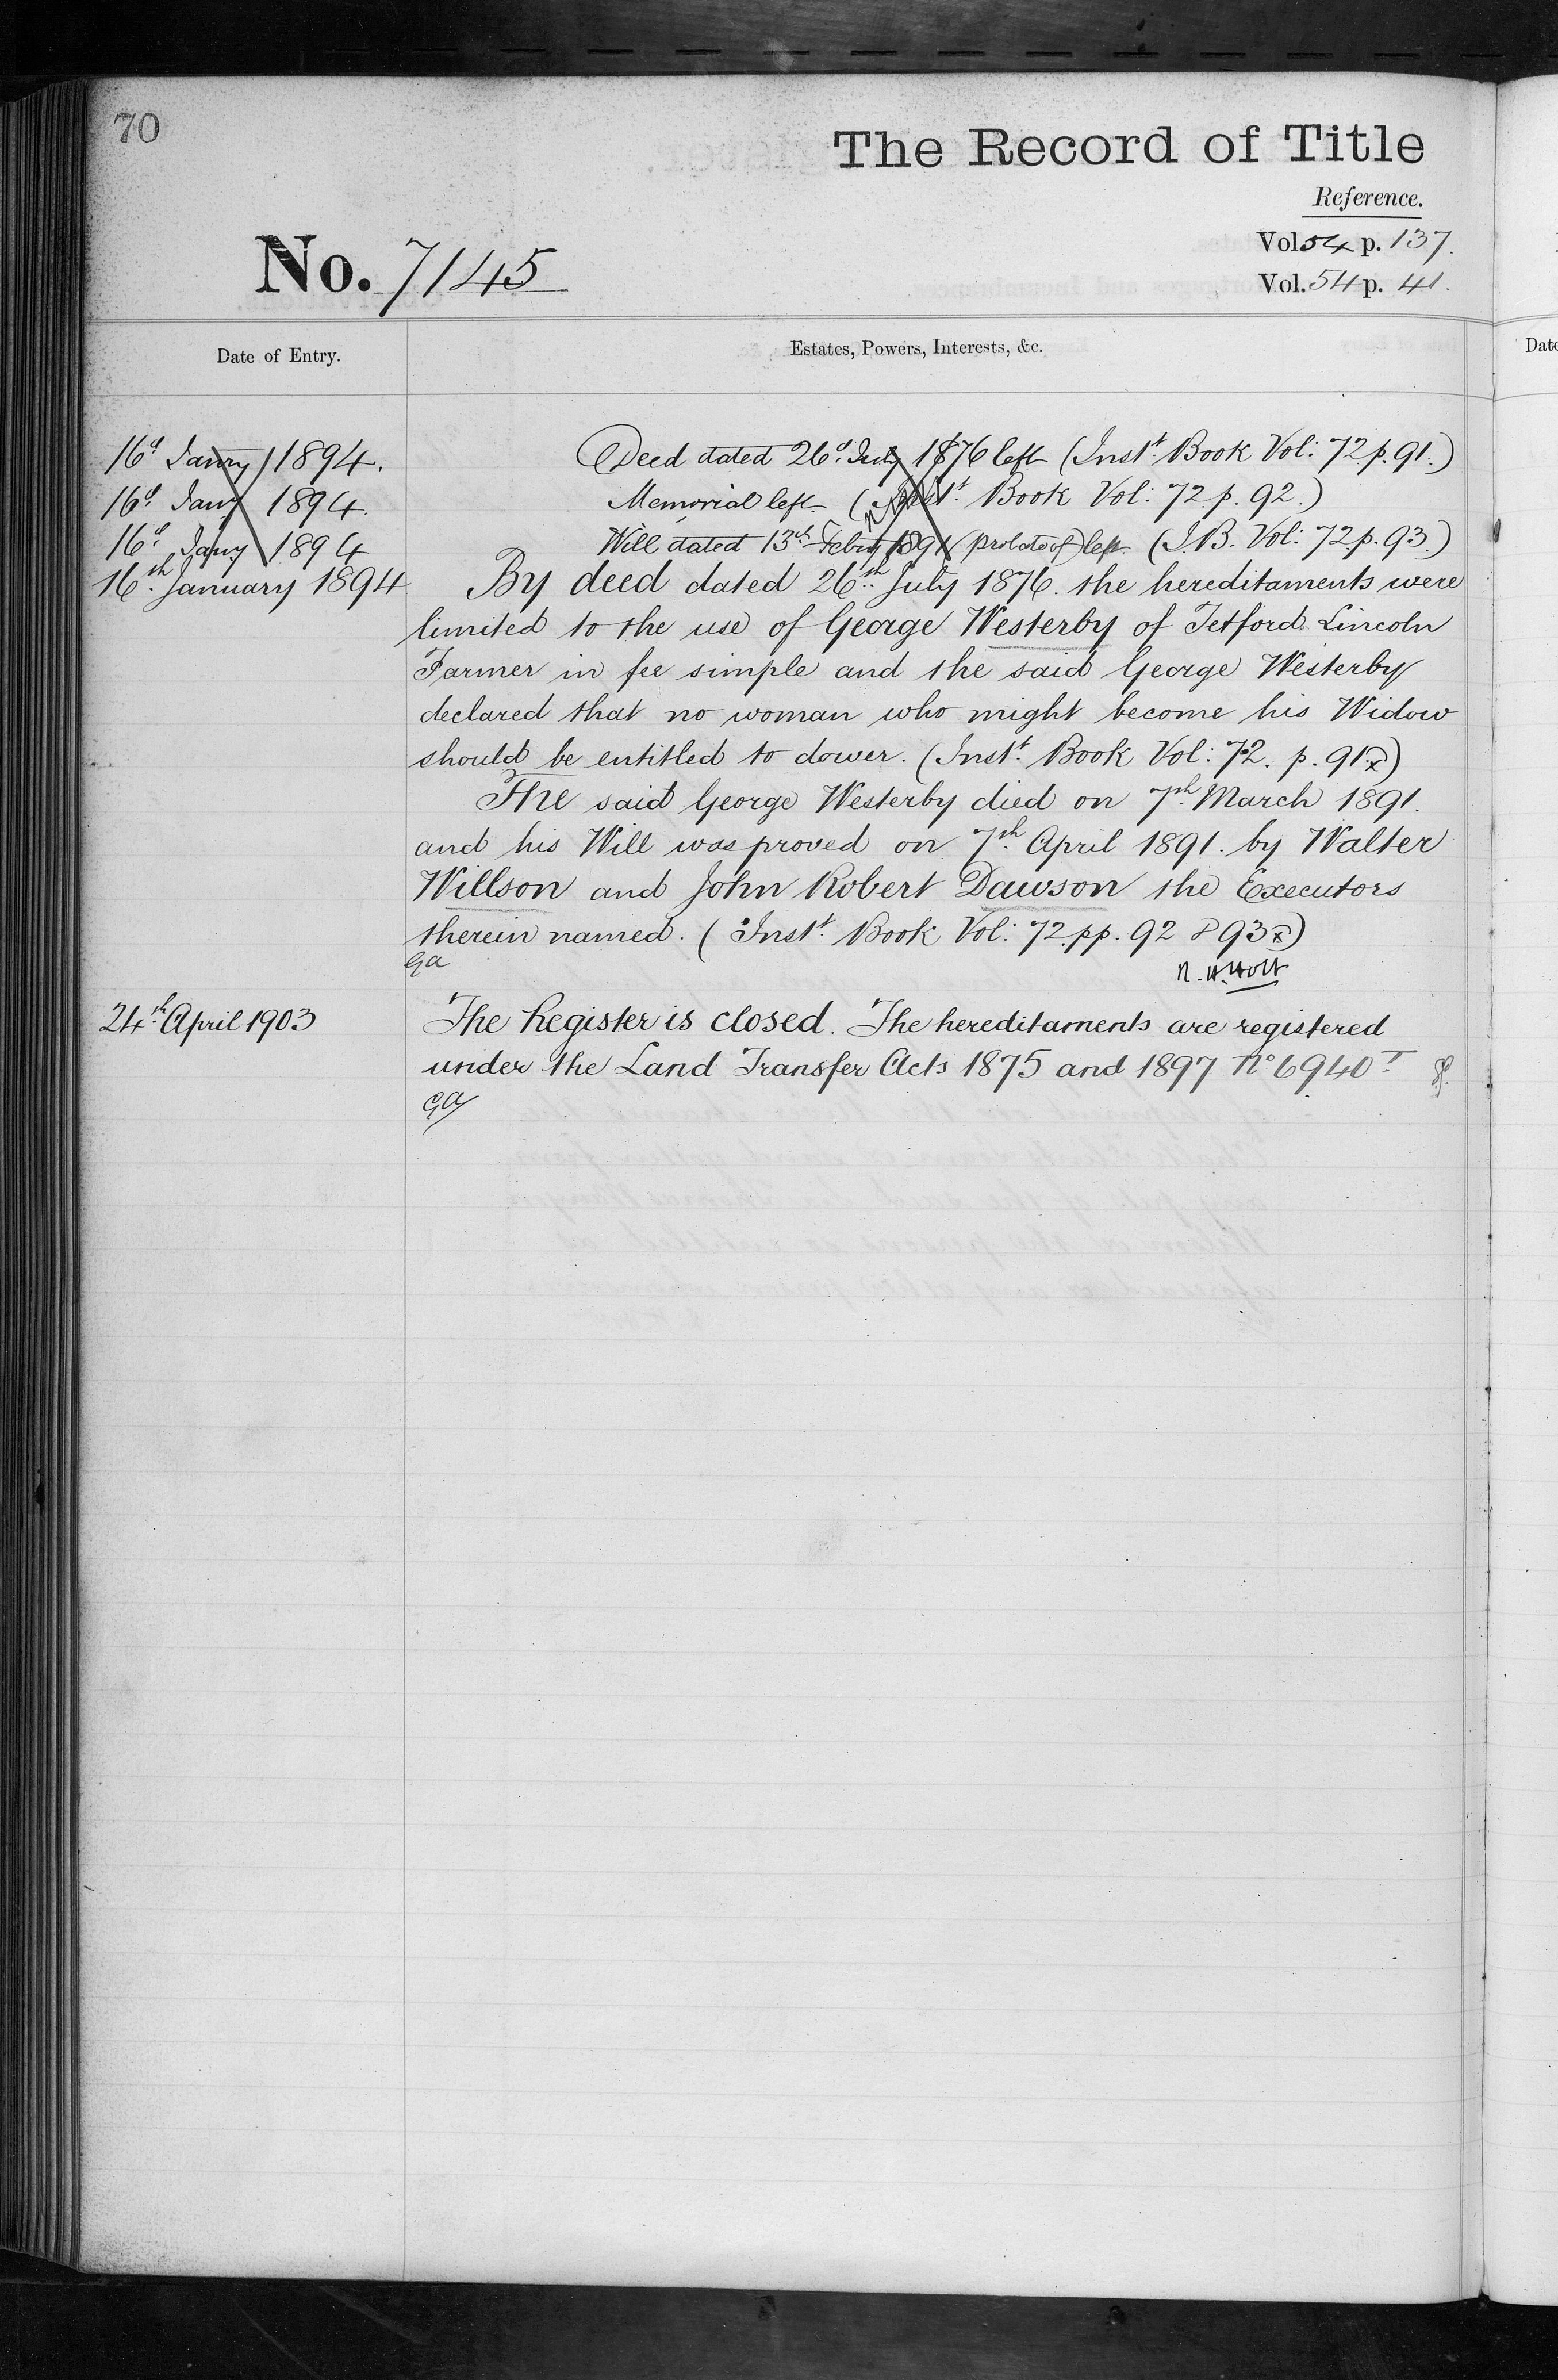 70
The Record of Title
Reference.
Vol. 54 p. 137.
No. 7145
Vol. 54 p. 41.
Date of Entry.
Estates, Powers, Interests, &c.
Date
16th Janry 1894.
Deed dated 26th July 1876 left (Instt. Book Vol: 72 p. 91.)
16th Jany 1894.
Memorial left (Instt. Book Vol: 72 p. 92.)
16th Jany 1894
Will dated 13th Febry 1891 (probate of) left (I.B. Vol: 72 p. 93.)
16th January 1894
By deed dated 26th July 1876. the hereditaments were
limited to the use of George Westerby of Tetford Lincoln
Farmer in fee simple and the said George Westerby
declared that no woman who might become his Widow
should be entitled to dower. (Instt. Book Vol: 72. p. 91 x)
The said George Westerby died on 7th March 1891.
and his Will was proved on 7th April 1891. by Walter
Willson and John Robert Dawson the Executors
therein named. (Instt. Book Vol: 72. pp. 92 & 93 x)
Ga
R. H. Holt
24th April 1903
The Register is closed. The hereditaments are registered
under the Land Transfer Acts 1875 and 1897 No. 6940 T
Ga